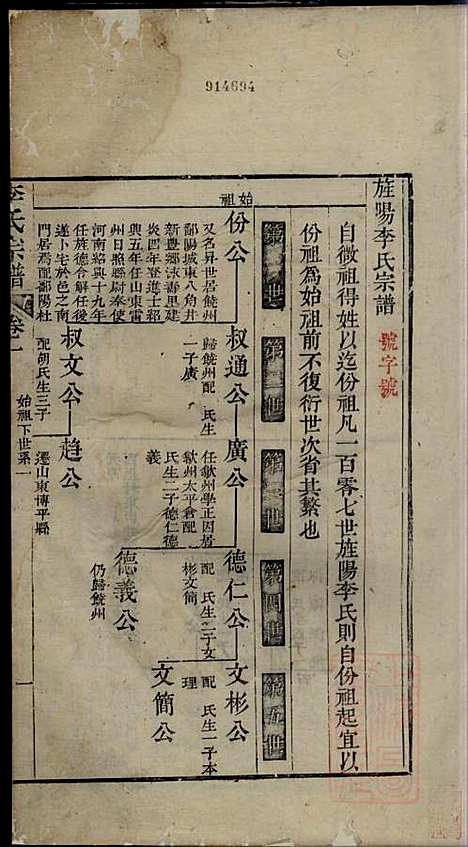 914694
旌陽李氏宗譜
號字號
自徵祖得姓以迄份祖凡一百零七世旌陽李氏則自份祖起宜以
份祖爲始祖前不復衍世次省其繁也
第一世
第二世
第三世
第四世
第五世
始祖
份公
叔通公
廣公
德仁公
文彬公
又名昇世居饒州
鄱陽城東八角井
新豊鄉沭壽里建
炎四年登進士紹
興五年任山東雷
州日照縣尉奉使
河南紹興十九年
任旌德令解任後
遂卜宅於邑之南
門居焉配鄱陽杜
歸饒州配 氏生
一子廣
任歙州學正因居
歙州太平倉配
氏生二子德仁德
義
配 氏生二子文
彬文簡
配 氏生一子本
理
文簡公
德義公
仍歸饒州
叔文公
趋公
配胡氏生三子
遷山東博平縣
李氏宗譜
卷一
始祖下世系一